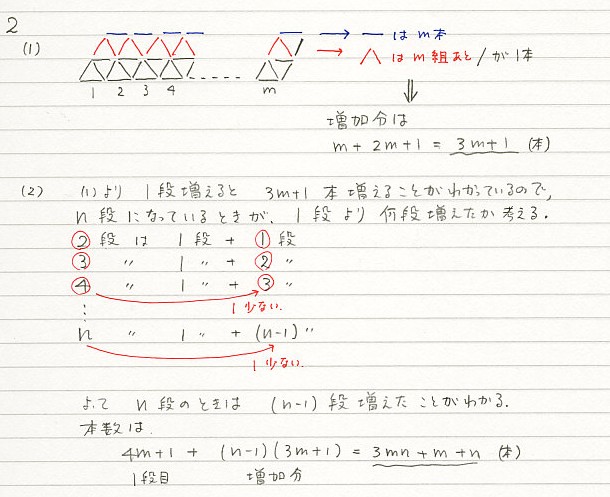 2
(1)
— は m本
∧ は m組あと / が1本
1 2 3 4 m
増加分は
m + 2m + 1 = 3m+1 (本)
(2) (1)より 1段増えると 3m+1 本増えることがわかっているので,
n段になっているときが, 1段より何段増えたか考える.
2 段は 1段 + 1 段
3 〃 1 〃 + 2 〃
4 〃 1 〃 + 3 〃
1少ない.
⋮
n 〃 1 〃 + (n-1) 〃
1少ない.
よって n段のときは (n-1)段増えたことがわかる.
本数は.
4m+1 + (n-1)(3m+1) = 3mn+m+n (本)
1段目 増加分